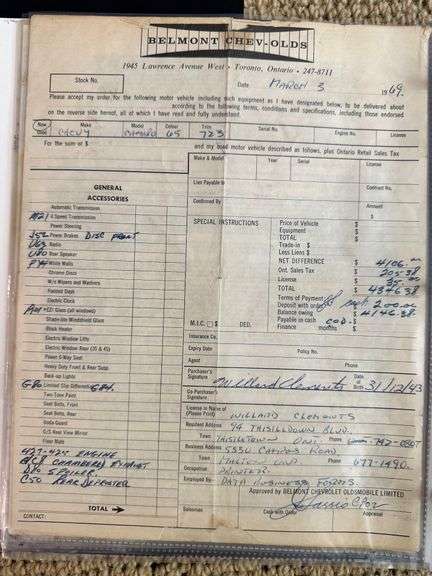 BELMONT CHEV-OLDS
1945 Lawrence Avenue West • Toronto, Ontario • 247-8711
Stock No.
Date March 3 1969.
Please accept my order for the following motor vehicle including such equipment as I have designated below, to be delivered about
according to the following terms, conditions and specifications, including those endorsed
on the reverse side hereof, all of which I have read and fully understand.
New Used Make Model Colour Trim Serial No. Engine No. License
CHEVY CAMARO 65 723
For the sum of $ and my used motor vehicle described as follows, plus Ontario Retail Sales Tax
Make & Model Year Serial License
Lien Payable to Contract No.
Confirmed By Amount
$
GENERAL
ACCESSORIES
Automatic Transmission
M21 4 Speed Transmission
Power Steering
J52 Power Brakes DISC FRONT
U63 Radio
U80 Rear Speaker
White Walls
Chrome Discs
W/W Wipers and Washers
Padded Dash
Electric Clock
EZI Glass (all windows)
Shade-lite Windshield Glass
Block Heater
Electric Window Lifts
Electric Window Rear (35 & 45)
Power 6-Way Seat
Heavy Duty Front & Rear Susp.
Back-up Lights
G80 Limited Slip Differential
Two Tone Paint
Seat Belts, Front
Seat Belts, Rear
Doda Guard
O/S Rear View Mirror
Floor Mats
427-425 ENGINE
CHAMBERED EXHAUST
D80 SPOILER.
C50 REAR DEFROSTER
TOTAL
CONTACT:
SPECIAL INSTRUCTIONS
Price of Vehicle $
Equipment $
TOTAL $
Trade-in $
Less Liens $
NET DIFFERENCE $ 4106.00
Ont. Sales Tax $ 205.38
License $ 35.00
TOTAL $ 4346.38
Terms of Payment
Deposit with order $ 200.00
Balance owing $ 4146.38
Payable in cash C.O.D.
Finance months $
M.I.C. $ DED.
Insurance Co.
Policy No.
Expiry Date
Agent Phone
Purchaser's Signature Willard Clements Date of Birth 31/12/43
Co-Purchaser's Signature
License in Name of (Please Print) WILLARD CLEMENTS
Resident Address 94 THISTLEDOWN BLVD.
Town THISTLETOWN ONT. Phone
Business Address
Town Phone 677-1490.
Occupation PRINTER.
Employed By DATA BUSINESS FORMS
Approved by BELMONT CHEVROLET OLDSMOBILE LIMITED
Salesman Cash with Order Appraisal